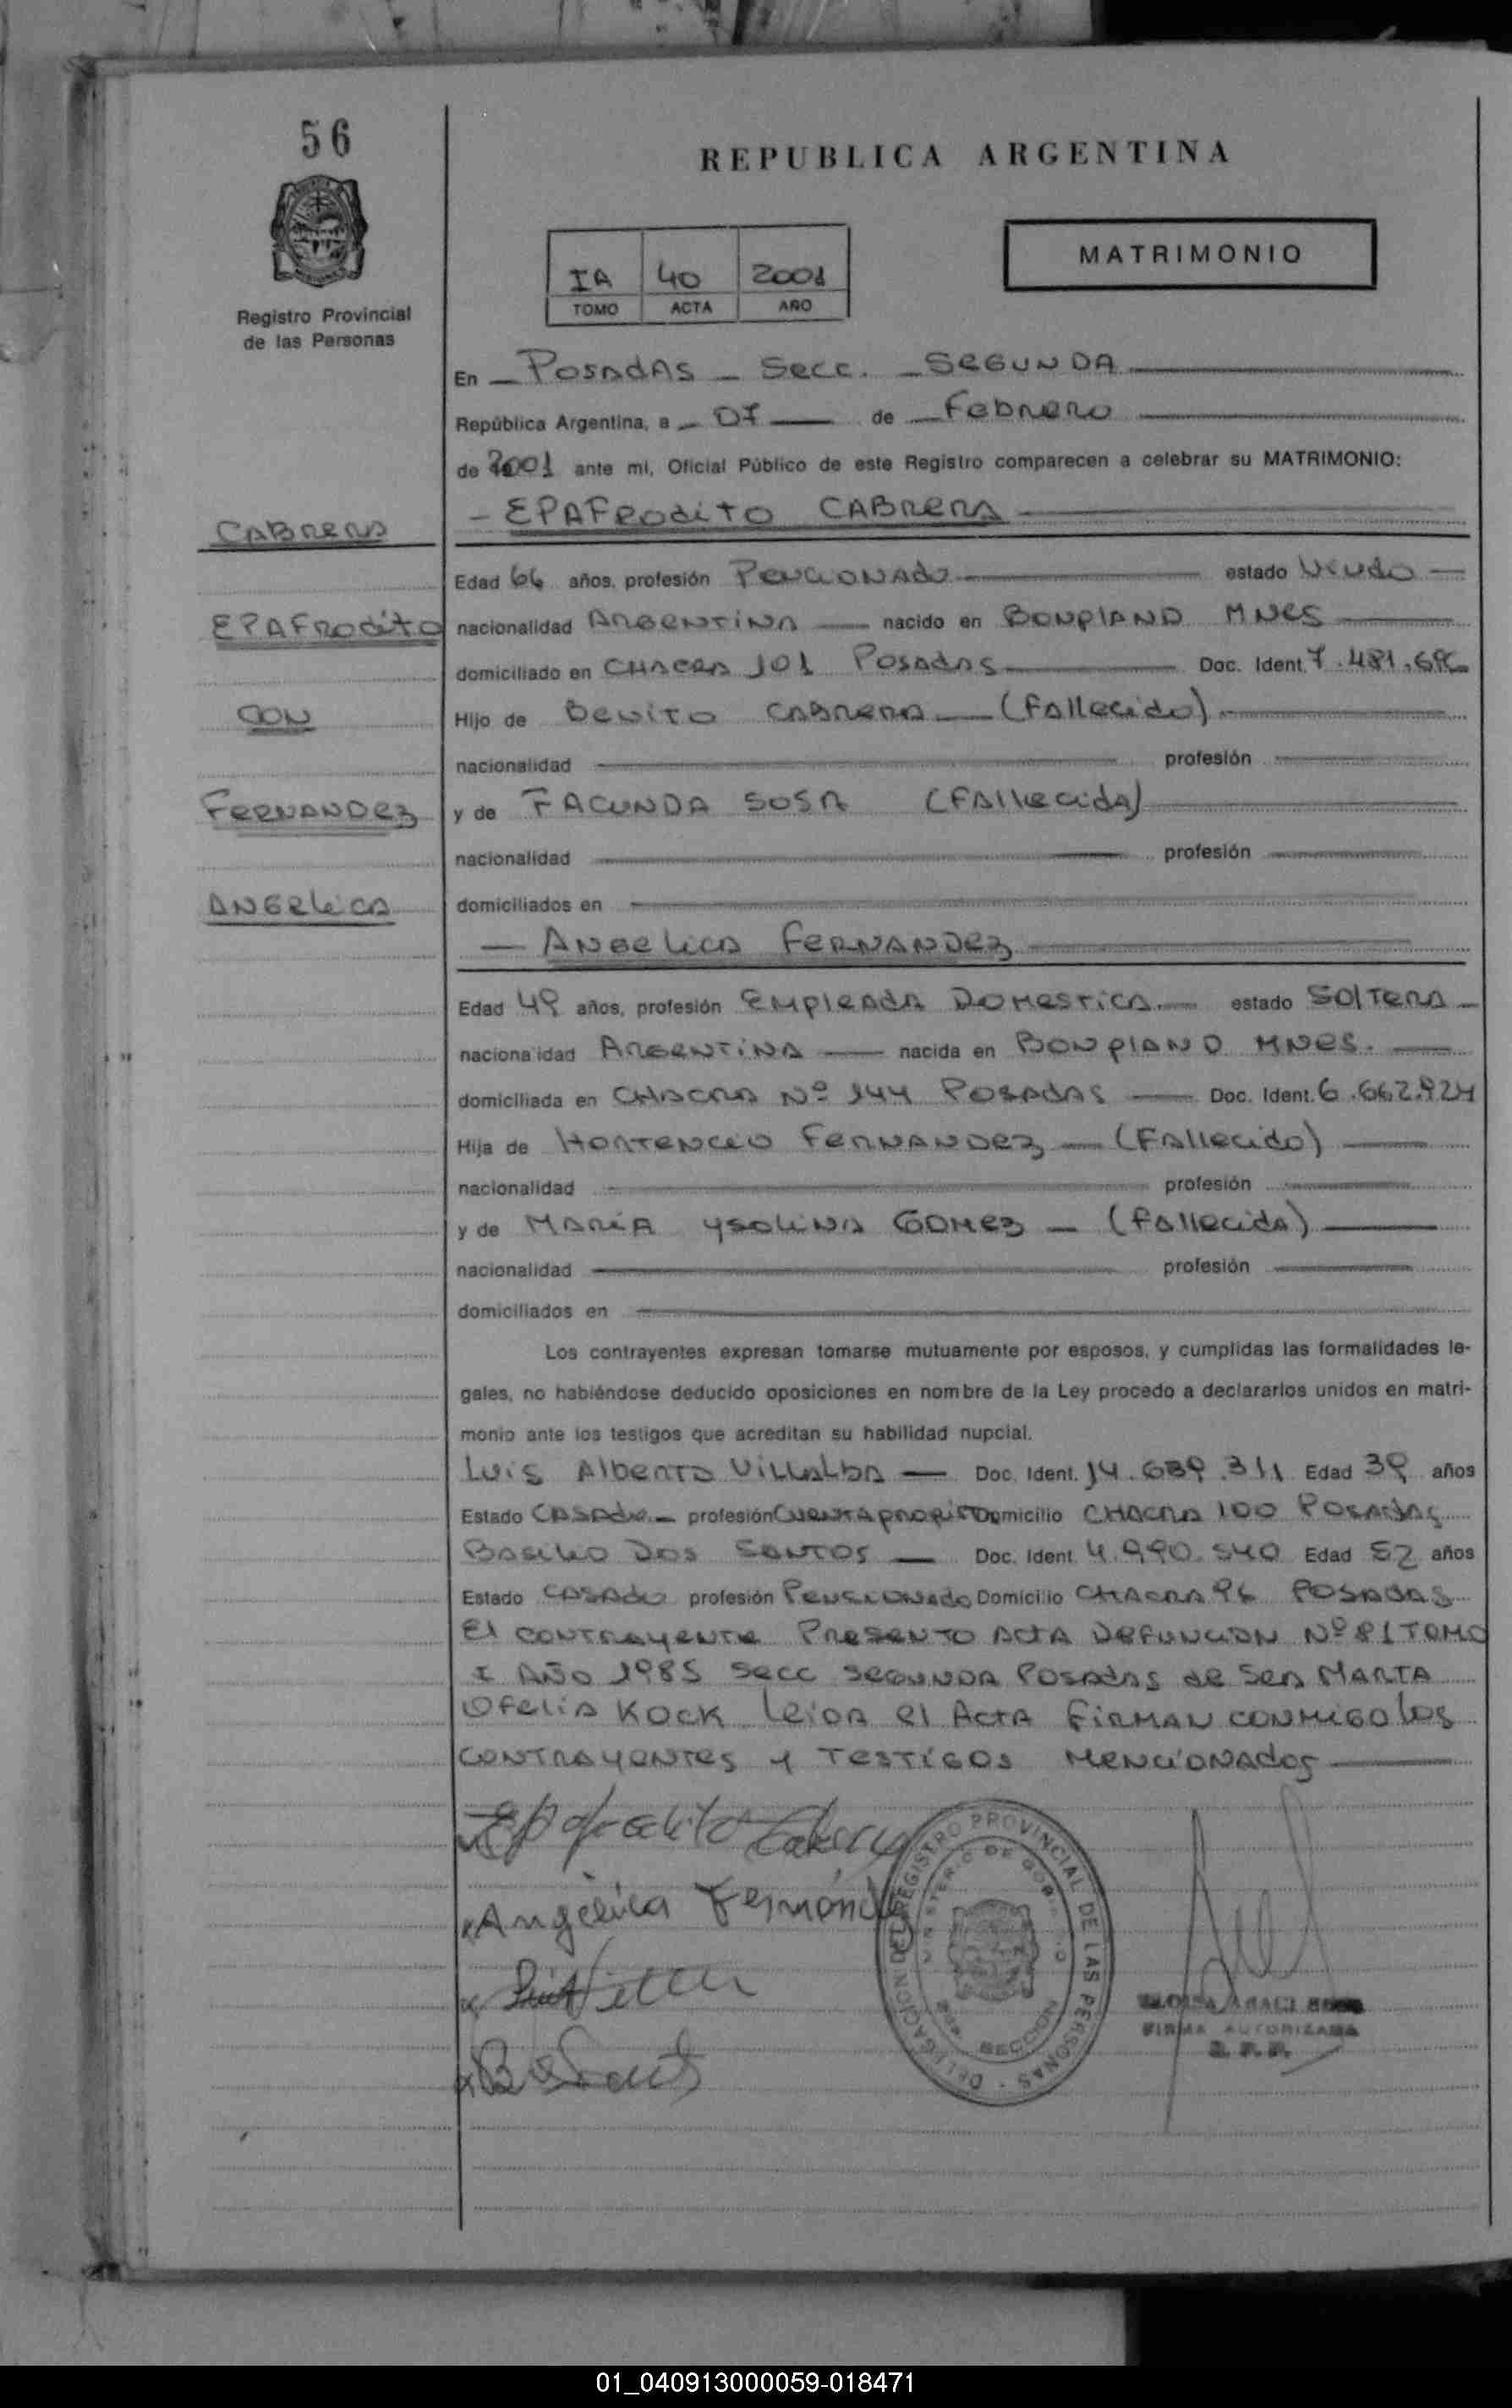 56
REPUBLICA ARGENTINA
MATRIMONIO
IA 40 2001
TOMO ACTA AÑO
Registro Provincial
de las Personas
En Posadas - Secc. - SEGUNDA
República Argentina, a 07 de Febrero
de 2001 ante mi, Oficial Público de este Registro comparecen a celebrar su MATRIMONIO:
- EPAFRODITO CABRERA
CABRERA
Edad 66 años, profesión Pencionado estado Viudo
EPAFRODITO
nacionalidad ARGENTINA nacido en BONPLAND MNES
domiciliado en CHACRA 101 POSADAS Doc. Ident. 7.481.696
CON
Hijo de Benito CABRERA (Fallecido)
nacionalidad profesión
FERNANDEZ
y de FACUNDA SOSA (Fallecida)
nacionalidad profesión
ANGELICA
domiciliados en
- ANGELICA FERNANDEZ
Edad 49 años, profesión EMPLEADA DOMESTICA estado SOLTERA
nacionalidad ARGENTINA nacida en BONPLAND MNES.
domiciliada en CHACRA Nº 144 POSADAS Doc. Ident. 6.662.924
Hija de HORTENCIO FERNANDEZ (Fallecido)
nacionalidad profesión
y de MARIA YSOLINA GOMEZ - (Fallecida)
nacionalidad profesión
domiciliados en
Los contrayentes expresan tomarse mutuamente por esposos, y cumplidas las formalidades le-
gales, no habiéndose deducido oposiciones en nombre de la Ley procedo a declararlos unidos en matri-
monio ante los testigos que acreditan su habilidad nupcial.
Luis Alberto VILLALBA Doc. Ident. 14.689.311 Edad 39 años
Estado CASADO profesión Cuentapropista Domicilio CHACRA 100 POSADAS
Basilio DOS SANTOS Doc. Ident. 4.990.540 Edad 52 años
Estado CASADO profesión Pensionado Domicilio CHACRA 96 POSADAS
El CONTRAYENTE PRESENTO ACTA DEFUNCION Nº 81 TOMO
I AÑO 1985 Secc SEGUNDA POSADAS de SRA MARTA
OFELIA KOCK Leida el ACTA FIRMAN CONMIGO los
CONTRAYENTES y TESTIGOS MENCIONADOS
Epafrodito Cabrera
Angélica Fernández
DELEGACION DEL REGISTRO PROVINCIAL DE LAS PERSONAS
MINISTERIO DE GOBIERNO
SECCION
FIRMA AUTORIZADA
01_040913000059-018471